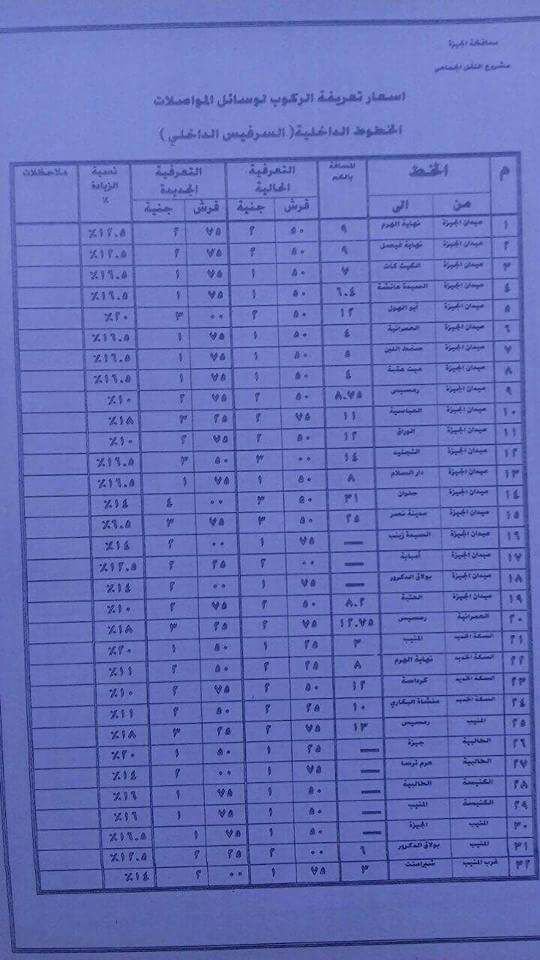 محافظة الجيزة
مشروع النقل الجماعي
اسعار تعريفة الركوب لوسائل المواصلات
الخطوط الداخلية (السرفيس الداخلي)
م الخط المسافة بالكم التعرفية الحالية التعرفية الجديدة نسبة الزيادة % ملاحظات
من الى قرش جنية قرش جنية
١ ميدان الجيزة نهاية الهرم ٩ ٥٠ ٢ ٧٥ ٢ ١٢.٥٪
٢ ميدان الجيزة نهاية فيصل ٩ ٥٠ ٢ ٧٥ ٢ ١٢.٥٪
٣ ميدان الجيزة الكيت كات ٧ ٥٠ ١ ٧٥ ١ ١٦.٥٪
٤ ميدان الجيزة السيدة عائشة ٦.٤ ٥٠ ١ ٧٥ ١ ١٦.٥٪
٥ ميدان الجيزة أبو الهول ١٢ ٥٠ ٢ ٠٠ ٣ ٢٠٪
٦ ميدان الجيزة العمرانية ٤ ٥٠ ١ ٧٥ ١ ١٦.٥٪
٧ ميدان الجيزة صفط اللبن ٥ ٥٠ ١ ٧٥ ١ ١٦.٥٪
٨ ميدان الجيزة ميت عقبة ٤ ٥٠ ١ ٧٥ ١ ١٦.٥٪
٩ ميدان الجيزة رمسيس ٨.٧٥ ٥٠ ٢ ٧٥ ٢ ١٠٪
١٠ ميدان الجيزة العباسية ١١ ٧٥ ٢ ٢٥ ٣ ١٨٪
١١ ميدان الجيزة الوراق ١٢ ٥٠ ٢ ٧٥ ٢ ١٠٪
١٢ ميدان الجيزة ١٤ ٠٠ ٣ ٥٠ ٣ ١٦.٥٪
١٣ ميدان الجيزة دار السلام ٨ ٥٠ ١ ٧٥ ١ ١٦.٥٪
١٤ ميدان الجيزة حلوان ٣١ ٥٠ ٣ ٠٠ ٤ ١٤٪
١٥ ميدان الجيزة مدينة نصر ٢٥ ٥٠ ٣ ٧٥ ٣ ٦.٥٪
١٦ ميدان الجيزة السيدة زينب — ٧٥ ١ ٠٠ ٢ ١٤٪
١٧ ميدان الجيزة أمبابة — ٠٠ ٢ ٢٥ ٢ ١٢.٥٪
١٨ ميدان الجيزة بولاق الدكرور — ٧٥ ١ ٠٠ ٢ ١٤٪
١٩ ميدان الجيزة العتبة ٨.٢ ٥٠ ٢ ٧٥ ٢ ١٠٪
٢٠ العمرانية رمسيس ١٢.٧٥ ٧٥ ٢ ٢٥ ٣ ١٨٪
٢١ السكة الحديد المنيب ٣ ٢٥ ١ ٥٠ ١ ٢٠٪
٢٢ السكة الحديد نهاية الهرم ٨ ٢٥ ٢ ٥٠ ٢ ١١٪
٢٣ السكة الحديد كرداسة ١٢ ٥٠ ٢ ٧٥ ٢ ١٠٪
٢٤ السكة الحديد منشاة البكاري ١٠ ٢٥ ٢ ٥٠ ٢ ١١٪
٢٥ المنيب رمسيس ١٣ ٧٥ ٢ ٢٥ ٣ ١٨٪
٢٦ الطالبية جيزة — ٢٥ ١ ٥٠ ١ ٢٠٪
٢٧ الطالبية هرم ترسا — ٧٥ ١ ٠٠ ٢ ١٤٪
٢٨ الكنيسة الطالبية — ٥٠ ١ ٧٥ ١ ١٦٪
٢٩ الكنيسة المنيب — ٥٠ ١ ٧٥ ١ ١٦٪
٣٠ المنيب الجيزة — ٥٠ ١ ٧٥ ١ ١٦.٥٪
٣١ المنيب بولاق الدكرور ٦ ٠٠ ٢ ٢٥ ٢ ١٢.٥٪
٣٢ غرب المنيب شبرامنت ٣ ٧٥ ١ ٠٠ ٢ ١٤٪